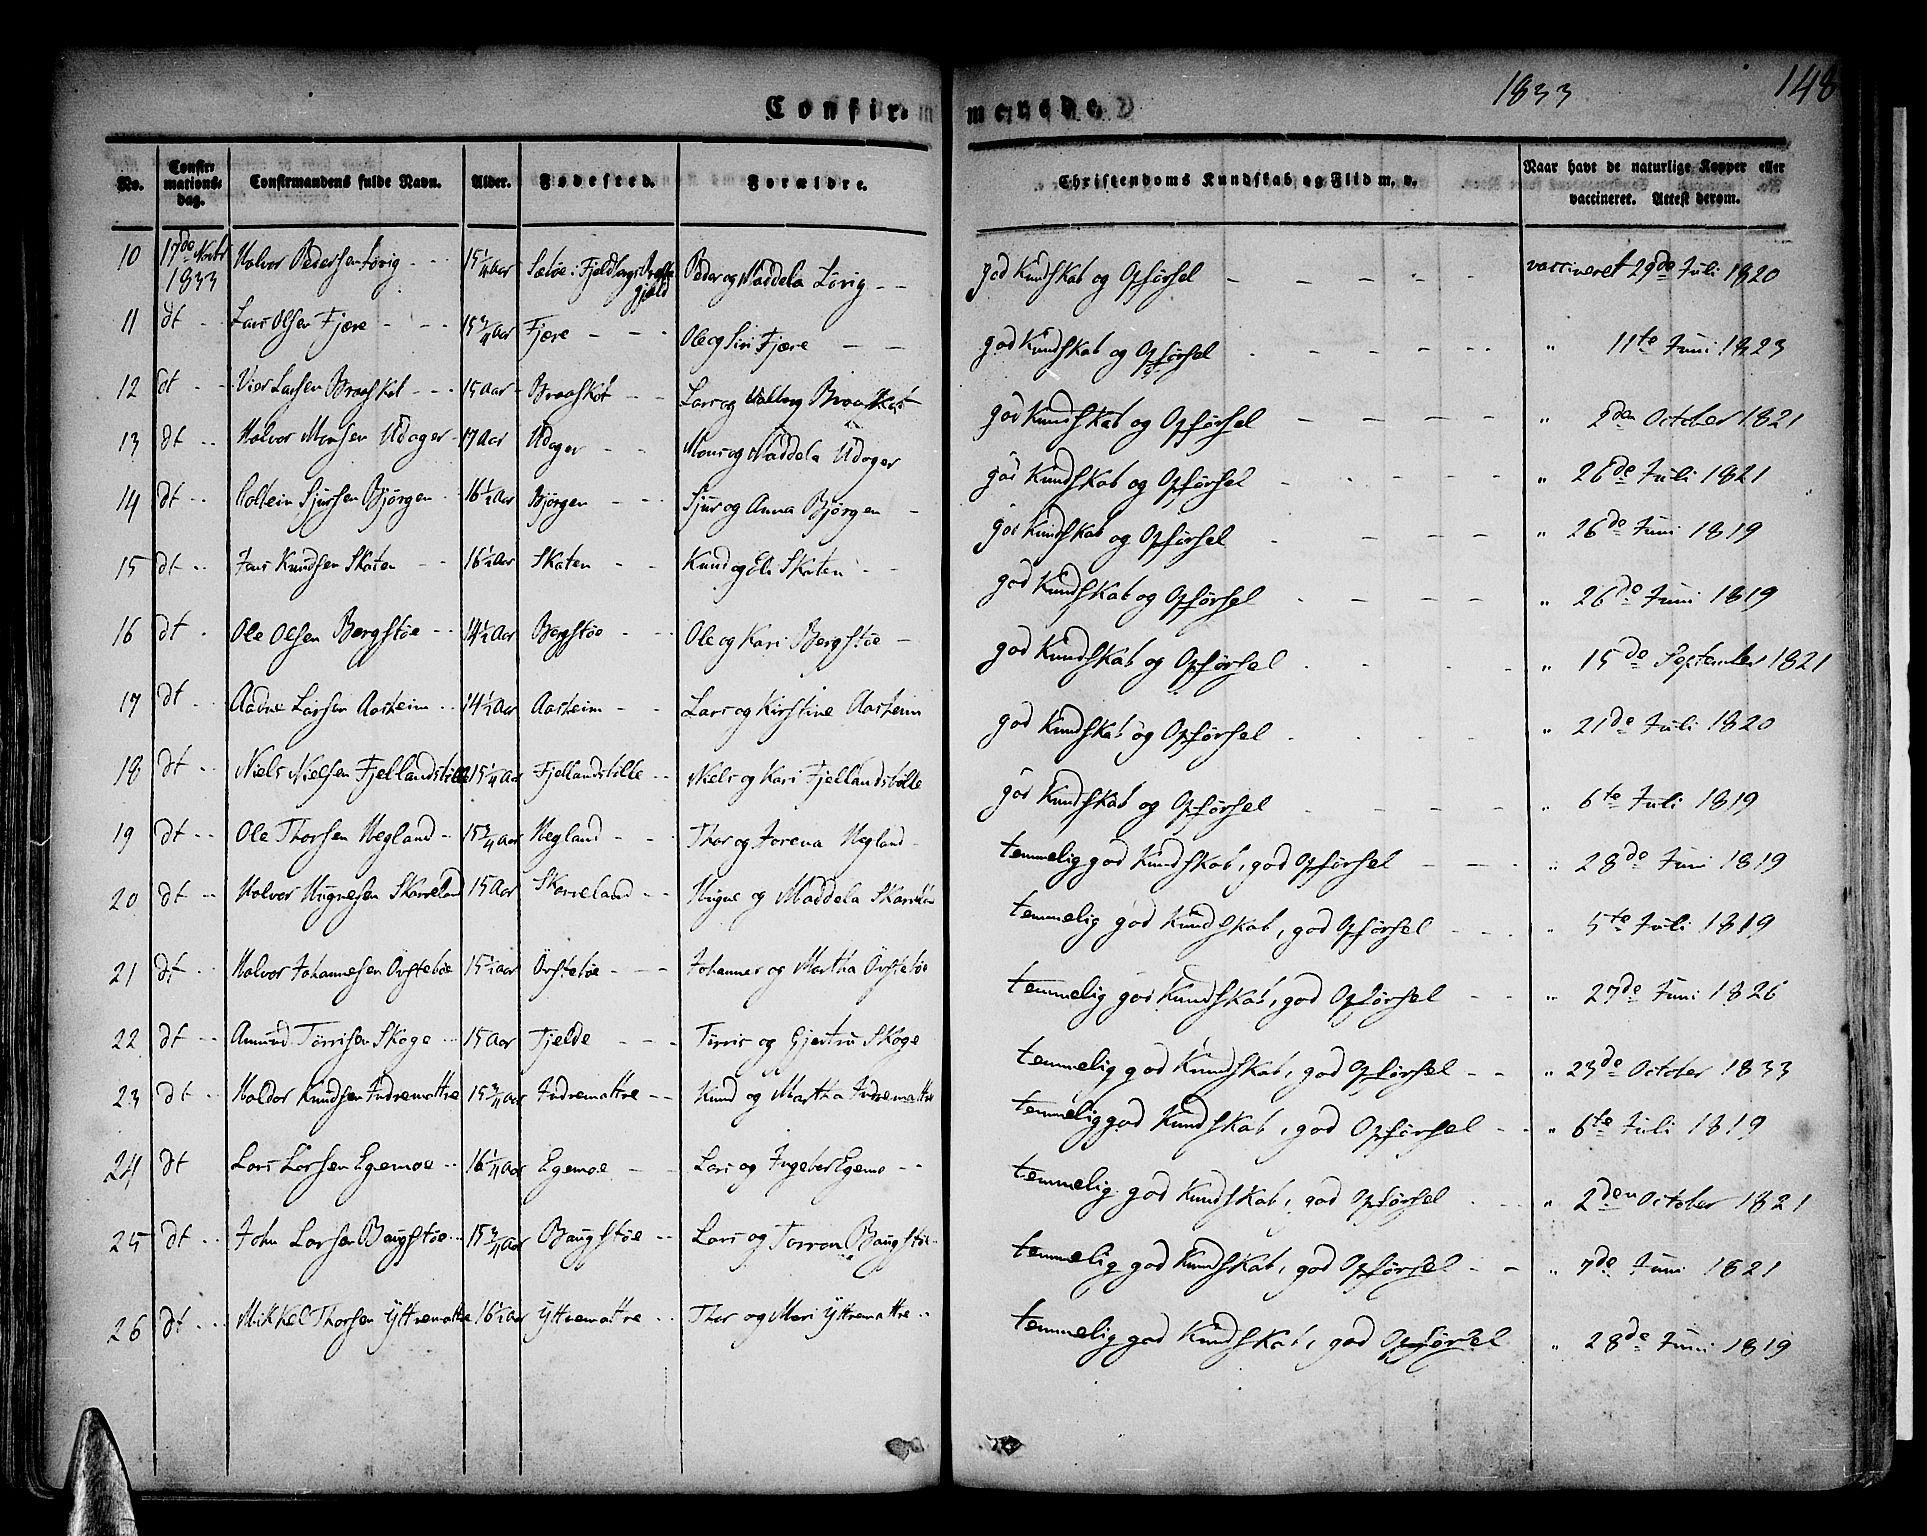 1833 148
Confirmerede.
No. Confirmations-dag. Confirmandens fulde Navn. Alder. Fødested. Forældre. Christendoms Kundskab og Flid m. v. Naar havt de naturlige Kopper eller vaccineret. Attest derom.
10 17de Novbr 1833 Halvor Pedersen Løvig 15 1/4 Aar Sætøe i Peder og Maddela Løvig god Kundskab og Opførsel vaccineret 29de Juli 1820
11 dt Lars Olsen Fjære 15 3/4 Aar Fjære Ole og Siri Fjære god Kundskab og Opførsel " 11te Juni 1823
12 dt Vier Larsen Braaskot 15 Aar Braaskot Lars og Braaskot god Kundskab og Opførsel " 2den October 1821
13 dt Halvor Monsen Udager 17 Aar Udager Mons og Maddela Udager god Kundskab og Opførsel " 28de Juli 1821
14 dt Sjursen Bjørgen 16 1/2 Aar Bjørgen Sjur og Anna Bjørgen god Kundskab og Opførsel " 26de Juni 1819
15 dt Jens Knudsen Skaten 16 1/2 Aar Skaten Knud og Eli Skaten god Kundskab og Opførsel " 26de Juni 1819
16 dt Ole Olsen Bergstøe 14 1/2 Aar Bergstøe Ole og Kari Bergstøe god Kundskab og Opførsel " 15de September 1821
17 dt Aadne Larsen Aasheim 14 1/2 Aar Aasheim Lars og Kirstine Aasheim god Kundskab og Opførsel " 21de Juli 1820
18 dt Niels Nielsen Fjellandsbølle 15 1/4 Aar Fjellandsbølle Niels og Kari Fjellandsbølle god Kundskab og Opførsel " 6te Juli 1819
19 dt Ole Thorsen Hegland 15 3/4 Aar Hegland Thor og Jorena Hegland temmelig god Kundskab, god Opførsel " 28de Juni 1819
20 dt Halvor Hugnesen Skarveland 15 Aar Skarveland Hugne og Maddela temmelig god Kundskab, god Opførsel " 5te Juli 1819
21 dt Halvor Johannesen Øvstebøe 15 1/2 Aar Øvstebøe Johannes og Martha Øvstebøe temmelig god Kundskab, god Opførsel " 27de Juni 1826
22 dt Amund Tørrisen Skoge 15 Aar Fjelde Tørris og Gjertru Skoge temmelig god Kundskab, god Opførsel " 23de October 1833
23 dt Haldor Knudsen Indremattre 15 3/4 Aar Indremattre Knud og Martha Indremattre temmelig god Kundskab, god Opførsel " 6te Juli 1819
24 dt Lars Larsen Egemoe 16 1/4 Aar Egemoe Lars og Ingebor Egemo temmelig god Kundskab, god Opførsel " 2den October 1821
25 dt John Larsen Baugstøe 15 3/4 Aar Baugstøe Lars og Torron Baugstøe temmelig god Kundskab, god Opførsel " 7de Juni 1821
26 dt Mikkel Thorsen Yttremattre 16 1/2 Aar Yttremattre Thor og Mari Yttremattre temmelig god Kundskab, god Opførsel " 28de Juni 1819